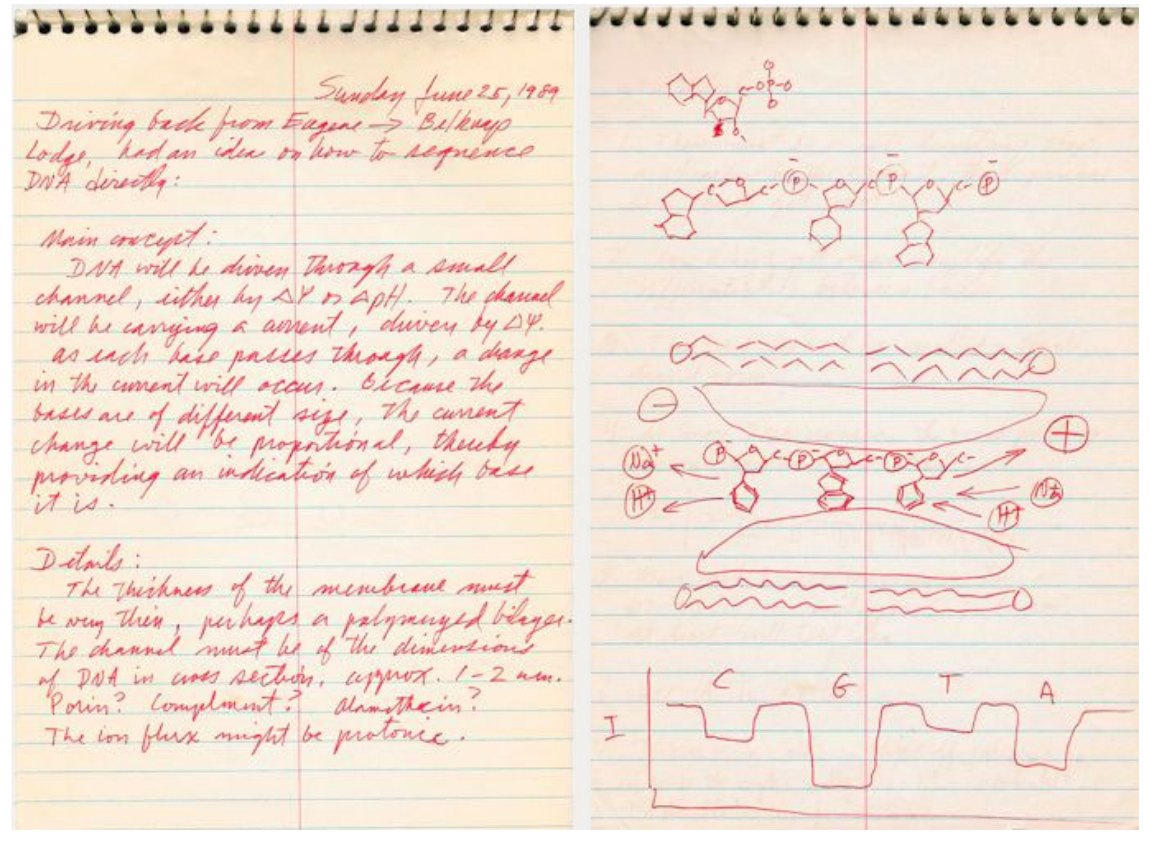 Sunday June 25, 1989
Driving back from Eugene → Belknap
Lodge, had an idea on how to sequence
DNA directly:
Main concept:
DNA will be driven through a small
channel, either by ΔΨ or ΔpH. The channel
will be carrying a current, driven by ΔΨ.
As each base passes through, a change
in the current will occur. Because the
bases are of different size, the current
change will be proportional, thereby
providing an indication of which base
it is.
Details:
The thickness of the membrane must
be very thin, perhaps a polymerized bilayer.
The channel must be of the dimensions
of DNA in cross section, approx. 1-2 nm.
Porin? Complement? Alamethicin?
The ion flux might be protonic.
O
C-O-P-O
O
O
O
C- O C- P⁻ O C P⁻ O C- P⁻
−
+
P⁻ O C- P⁻ O C- P⁻ O C-
Na⁺
H⁺
Na⁺
H⁺
C G T A
I